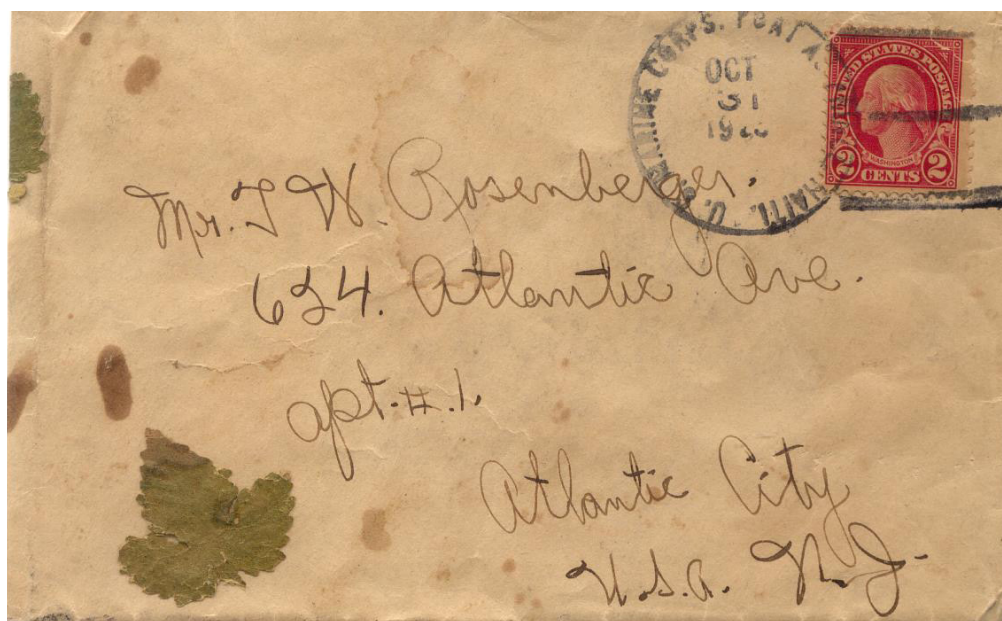 U.S. MARINE CORPS.
HAITI.
OCT
31
UNITED STATES POSTAGE
WASHINGTON
2 CENTS 2
Mr. T W. Rosenberger.
634. Atlantic Ave.
apt. #.1.
Atlantic City
U.S.A. N.J.